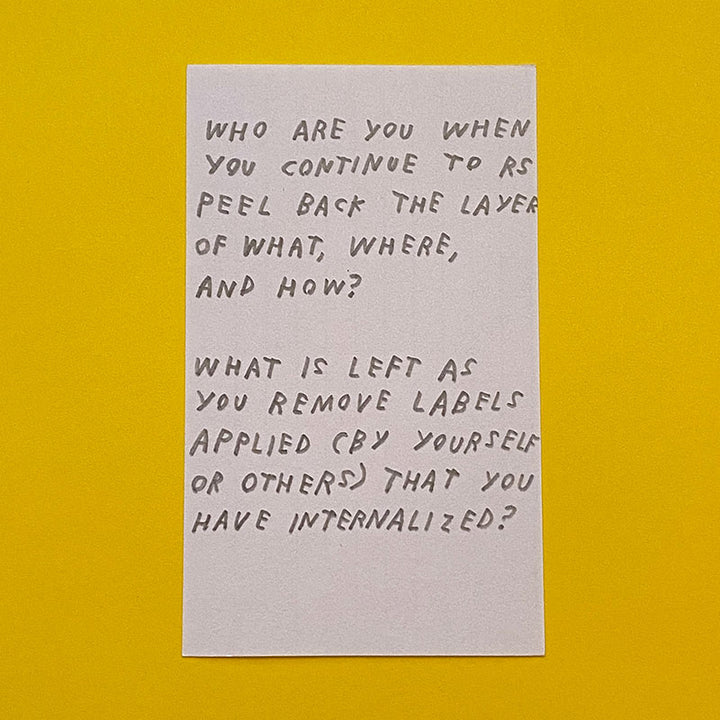 WHO ARE YOU WHEN
YOU CONTINUE TO RS
PEEL BACK THE LAYER
OF WHAT, WHERE,
AND HOW?
WHAT IS LEFT AS
YOU REMOVE LABELS
APPLIED (BY YOURSELF
OR OTHERS) THAT YOU
HAVE INTERNALIZED?